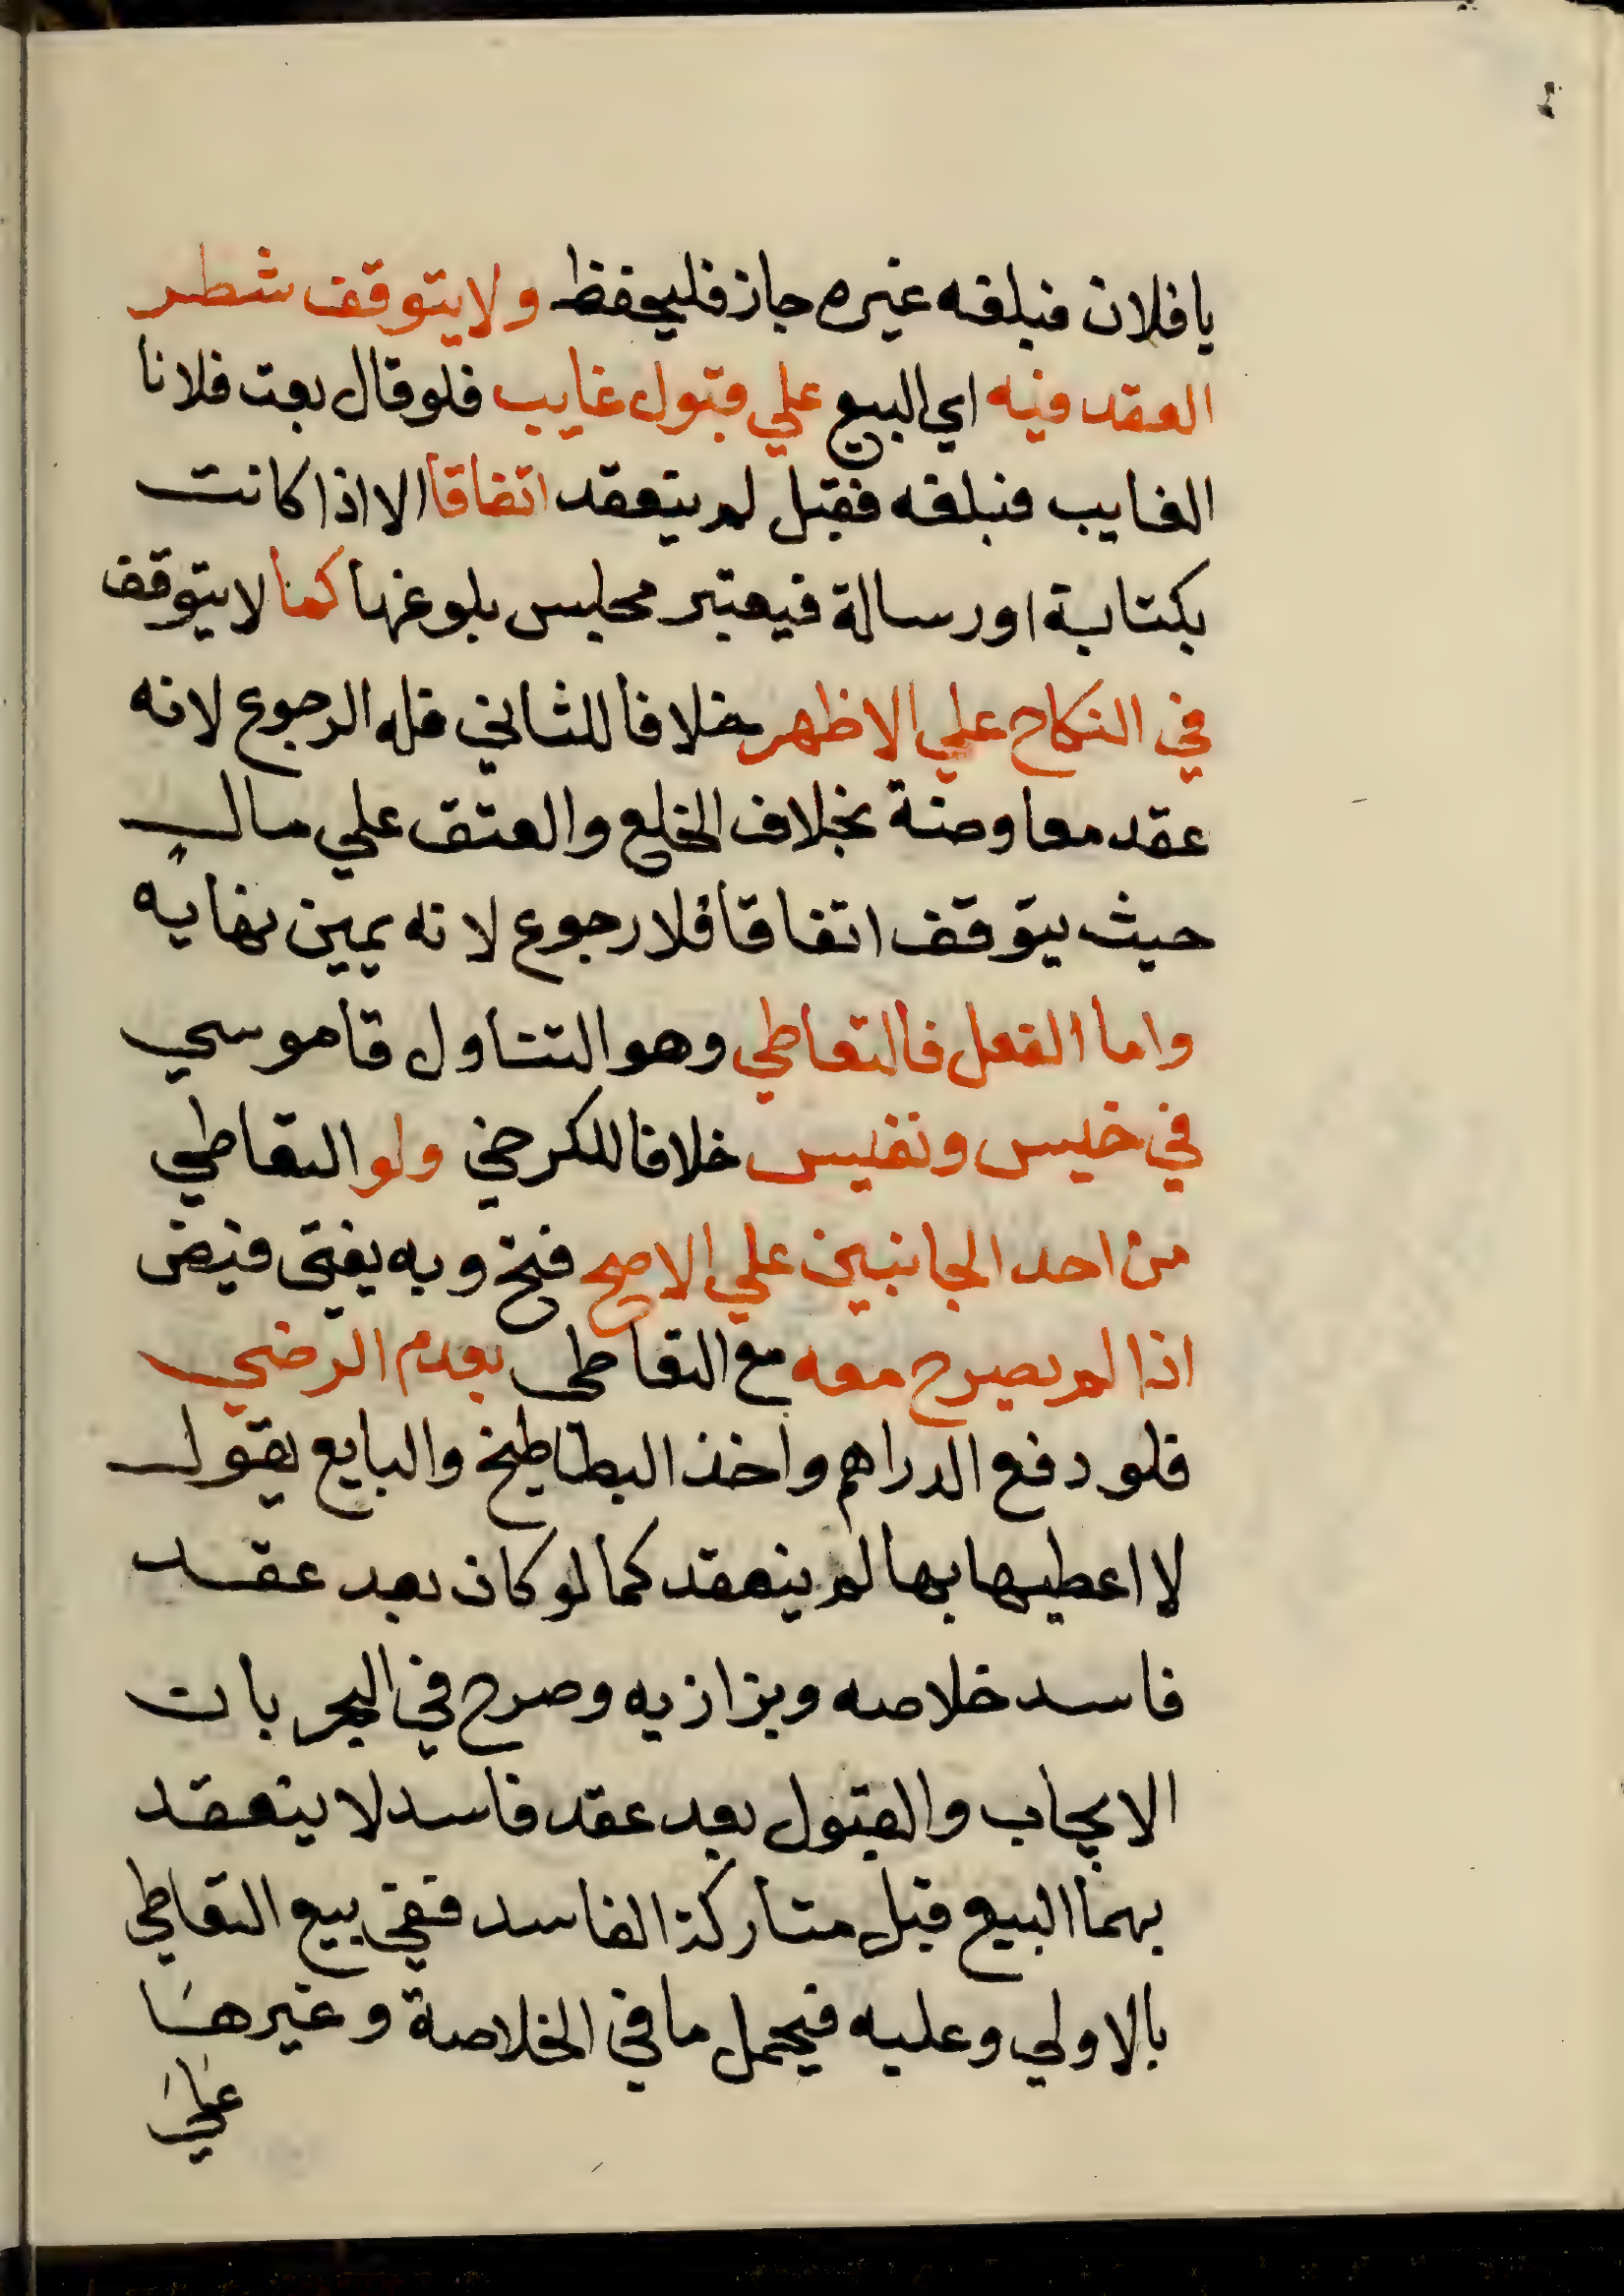 يا فلان فبلغه غيره جاز فليحفظ ولا يتوقف شطر
العقد فيه اي البيع علي قبول غايب فلو قال بعت فلانا
الغايب فبلغه فقبل لم ينعقد اتفاقا الا اذا كانت
بكتابة او رسالة فيعتبر مجلس بلوغها كما لا يتوقف
في النكاح علي الاظهر خلافا للثاني فله الرجوع لانه
عقد معاوضة بخلاف الخلع والعتق علي مال
حيث يتوقف اتفاقا فلا رجوع لانه يمين نهايه
واما الفعل فالتعاطي وهو التناول قاموسي
في خيس ونفيس خلافا للكرخي ولو التعاطي
من احد الجانبين علي الاصح فتح وبه يفتى فيض
اذا لم يصرح معه مع التعاطى بعدم الرضي
فلو دفع الدراهم واخذ البطاطيخ والبايع يقول
لا اعطيها بها لم ينعقد كما لو كان بعد عقد
فاسد خلاصه وبزازيه وصرح في البحر بان
الايجاب والقبول بعد عقد فاسد لا ينعقد
بهما البيع قبل متاركة الفاسد ففي بيع التعاطي
بالاولي وعليه فيحمل ما في الخلاصة وغيرها
علي